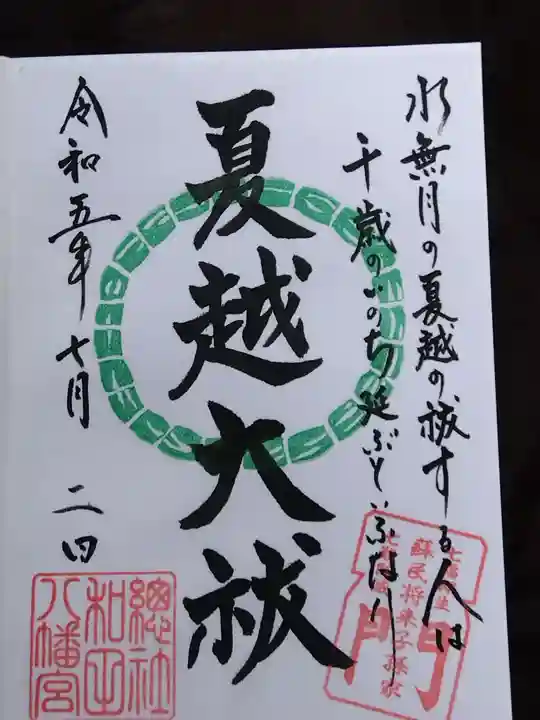 水無月の夏越の祓する人は
千歳のいのち延ぶといふなり
夏越大祓
令和五年七月
二四
蘇民将来子孫家
門
總社
和田
八幡宮